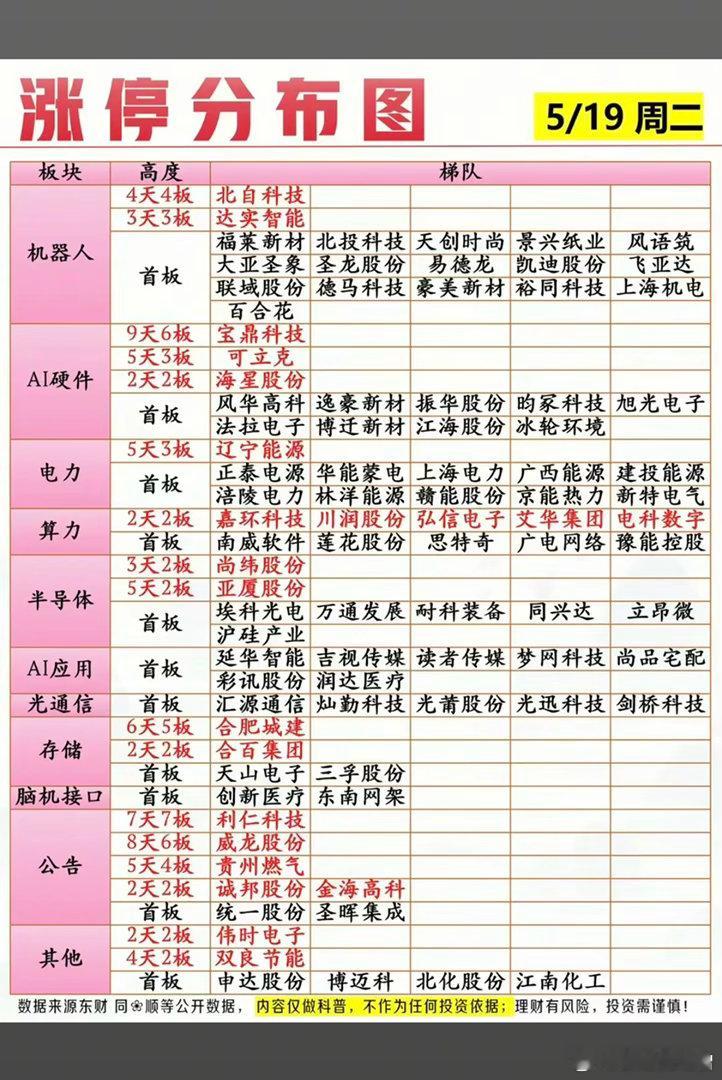 涨停分布图
5/19 周二
板块 高度 梯队
机器人
4天4板 北自科技
3天3板 达实智能
首板
福莱新材 北投科技 天创时尚 景兴纸业 风语筑
大亚圣象 圣龙股份 易德龙 凯迪股份 飞亚达
联域股份 德马科技 豪美新材 裕同科技 上海机电
百合花
AI硬件
9天6板 宝鼎科技
5天3板 可立克
2天2板 海星股份
首板
风华高科 逸豪新材 振华股份 昀冢科技 旭光电子
法拉电子 博迁新材 江海股份 冰轮环境
电力
5天3板 辽宁能源
首板
正泰电源 华能蒙电 上海电力 广西能源 建投能源
涪陵电力 林洋能源 赣能股份 京能热力 新特电气
算力
2天2板 嘉环科技 川润股份 弘信电子 艾华集团 电科数字
首板 南威软件 莲花股份 思特奇 广电网络 豫能控股
半导体
3天2板 尚纬股份
5天2板 亚厦股份
首板
埃科光电 万通发展 耐科装备 同兴达 立昂微
沪硅产业
AI应用
首板
延华智能 吉视传媒 读者传媒 梦网科技 尚品宅配
彩讯股份 润达医疗
光通信 首板 汇源通信 灿勤科技 光莆股份 光迅科技 剑桥科技
存储
6天5板 合肥城建
2天2板 合百集团
首板 天山电子 三孚股份
脑机接口 首板 创新医疗 东南网架
公告
7天7板 利仁科技
8天6板 威龙股份
5天4板 贵州燃气
2天2板 诚邦股份 金海高科
首板 统一股份 圣晖集成
其他
2天2板 伟时电子
4天2板 双良节能
首板 申达股份 博迈科 北化股份 江南化工
数据来源东财 同❀顺等公开数据，内容仅做科普，不作为任何投资依据；理财有风险，投资需谨慎！